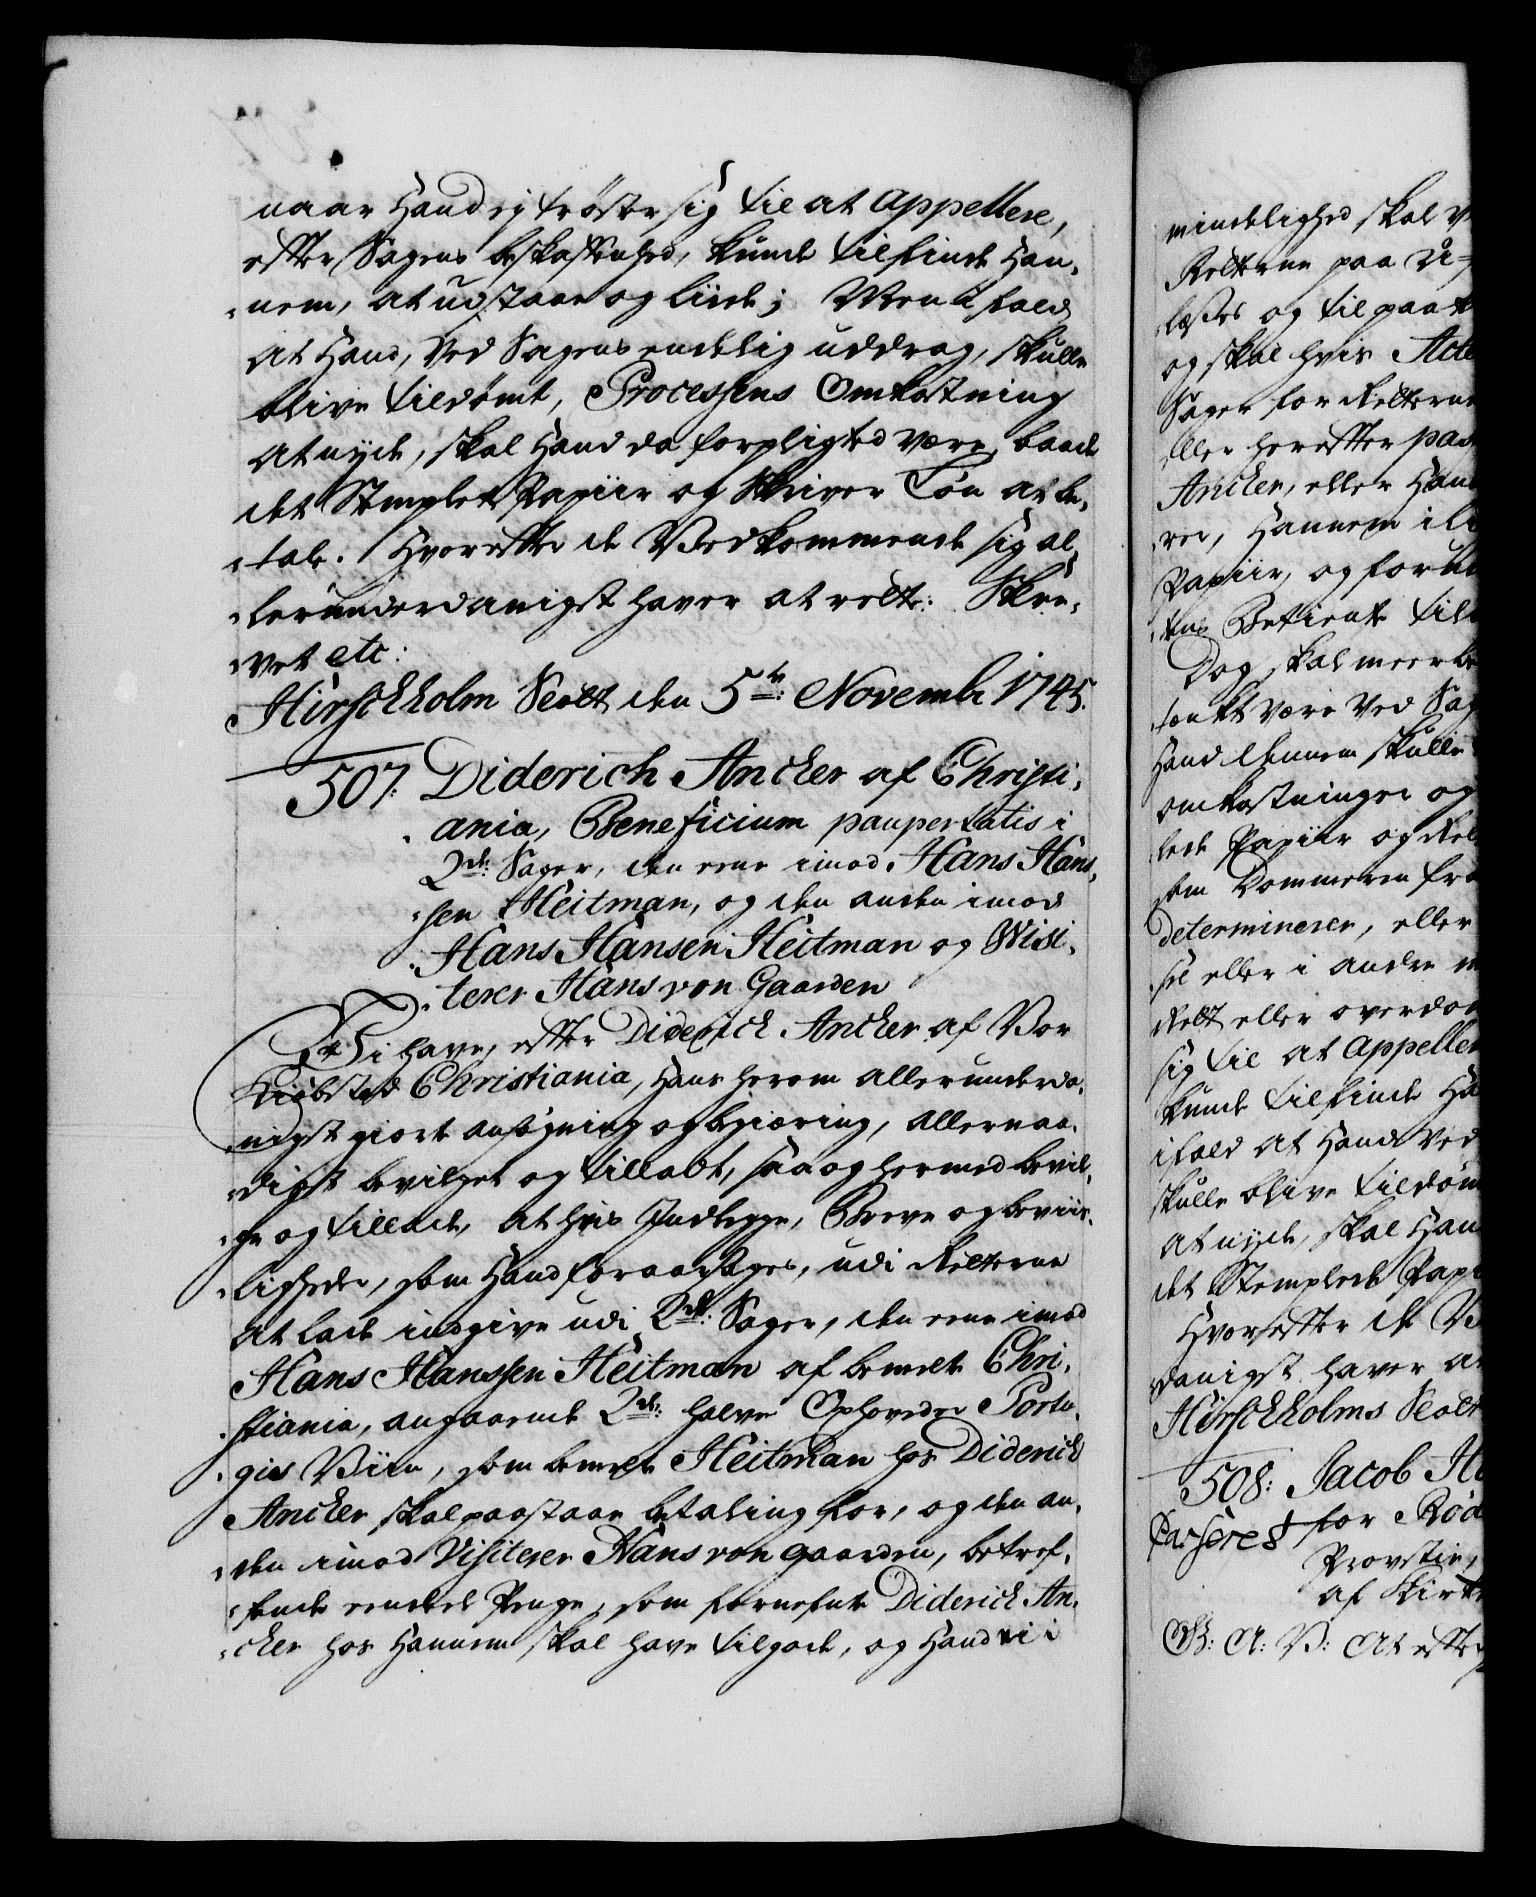 naar Hand ej trøster sig til at appellere,
efter Sagens beskaffenhed, kunde tilfinde Han-
nem, at udstaae og liide; Men i fald
at Hand, ved Sagens endelig uddrag, skulle
blive tildømt, Processens Omkostning
at nyde, skal Hand da forpligted være, baade
det Stemplet Papiir og Skriver Løn at be-
tale. Hvorefter de Vedkommende sig al-
lerunderdanigst haver at rette: Skre-
vet etc:
Hirschholm Slott den 5te: Novembr 1745.
507: Diderich Ancher af Christi-
ania, Beneficium paupertatis i
2de: Sager, den eene imod Hans Hans-
sen Heitman, og den anden imod
Hans Hansen Heitman og Visi-
terer Hans von Gaarden
Vi have, efter Diderich Ancher af Vor
Kiøbsted Christiania, Hans herom allerunderda-
nigst giorte ansøgning og begiæring, allernaa-
digst bevilget og tilladt, saa og hermed bevil-
ge og tillade, at hvis Indlegge, Breve og beviis-
ligheder, som Hand foraarsages, udi Retterne
at lade indgive udi 2de: Sager, den eene imod
Hans Hanssen Heitman af bemelte Chri-
stiania, angaaende 2de: halve Ophoveder Portu-
gis Viin, som bemelte Heitman hos Diderich
Ancher skal paastaae betaling for, og den an-
den imod Visiterer Hans von Gaarden, betref-
fende eendeel Penge, som fornefnte Diderich An-
cher hos Hannem skal have tilgode, og Hand ei i
mindelighed skal
Retterne paa U-
læses og til paat
og skal hvis Acte
Sager for Retterne
eller herefter pas
Ancher, eller Han
ver, Hannem
Papiir, og for
tens Betiente til
Dog skal meerbe
tenkt være ved Sag
Hand dennem skulle
omkostninger og
lede Papiir og Ret
som Dommeren fra
determinerer, eller
see eller i andre
Rett eller overdom
sig til at appeller
kunde tilfinde Ha
ifald at Hand ved
skulle blive tildøm
at nyde, skal Han
det Stemplede Papi
Hvorefter de V
danigst haver a
Hirschholms Slott
508: Jacob H
for Rød
Provstie,
af Kirke
G: A: V: At efter